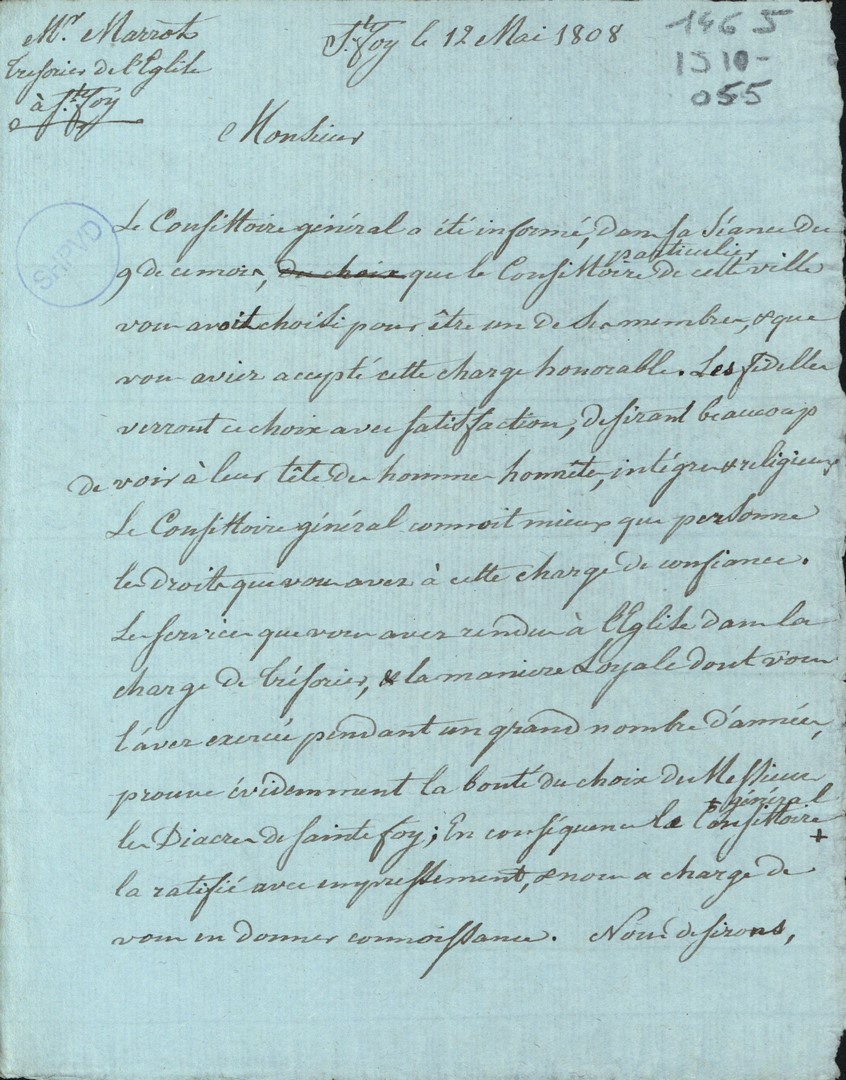 Mr. Marrot
Trésorier de l'Eglise
à Ste. Foy
Ste. Foy le 12 Mai 1808
1465
1510-
055
Monsieur
SHPVD
Le Consistoire général a été informé, dans sa Séance du
9 de ce mois, du choix que le Consistoire particulier de cette ville
vous avoit choisi pour être un de ses membres, & que
vous aviez accepté cette charge honorable. Les fidelles
verront ce choix avec satisfaction, desirant beaucoup
de voir à leur tête des hommes honnêtes, intégres & religieux
Le Consistoire général connoit mieux que personne
les droits que vous avez à cette charge de confiance.
Les services que vous avez rendus à l'Eglise dans la
charge de Trésorier, & la maniere Loyale dont vous
l'avez exercée pendant un grand nombre d'années,
prouve évidemment la bonté du choix du Messieurs
les Diacres de sainte foy; En conséquence le Consistoire général +
la ratifié avec empressement, & nous a chargé de
vous en donner connoissance. Nous desirons,